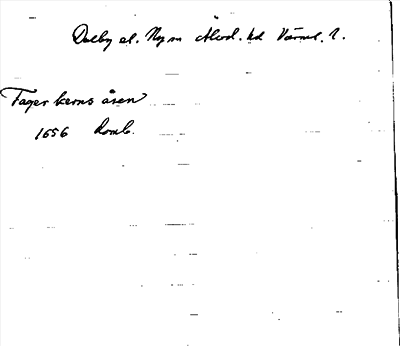 Dalby el. Ny sn Älvd. hd Värml. l.
Fager berns åsen
1656 Lomb.